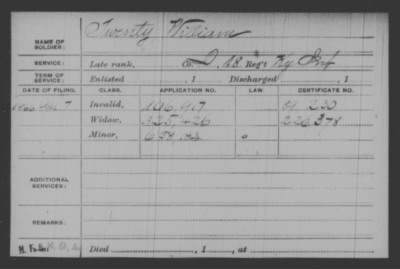 NAME OF SOLDIER: Twenty William
SERVICE: Late rank, Co. D, 18 Reg't Ky Inf
TERM OF SERVICE: Enlisted , 1 Discharged , 1
DATE OF FILING. CLASS. APPLICATION NO. LAW. CERTIFICATE NO.
Invalid, 106.917
Widow, 325,426 226378
Minor,
ADDITIONAL SERVICES:
REMARKS:
Died , 1 , at